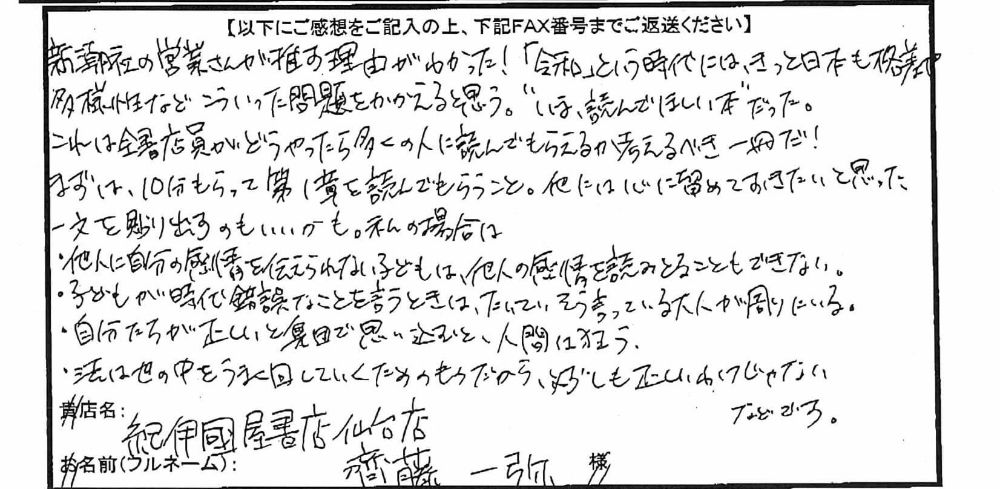 【以下にご感想をご記入の上、下記FAX番号までご返送ください】
新潮社の営業さんが推す理由がわかった！「令和」という時代には、きっと日本も格差や
多様性など こういった問題をかかえると思う。"いま、読んでほしい本"だった。
これは全書店員がどうやったら多くの人に読んでもらえるか考えるべき一冊だ！
まずは、10分もらって第1章を読んでもらうこと。他には心に留めておきたいと思った、
一文を貼り出すのもいいかも。私の場合は
・他人に自分の感情を伝えられない子どもは、他人の感情を読みとることもできない。
・子どもが時代錯誤なことを言うときは、たいてい、そう言っている大人が周りにいる。
・自分たちが正しいと真面目で思い込むと、人間は狂う、
・法は世の中をうまく回していくためのものだから、必ずしも正しいわけじゃない
などです。
貴店名：
紀伊國屋書店 仙台店
お名前(フルネーム)：
齋藤 一弥 様